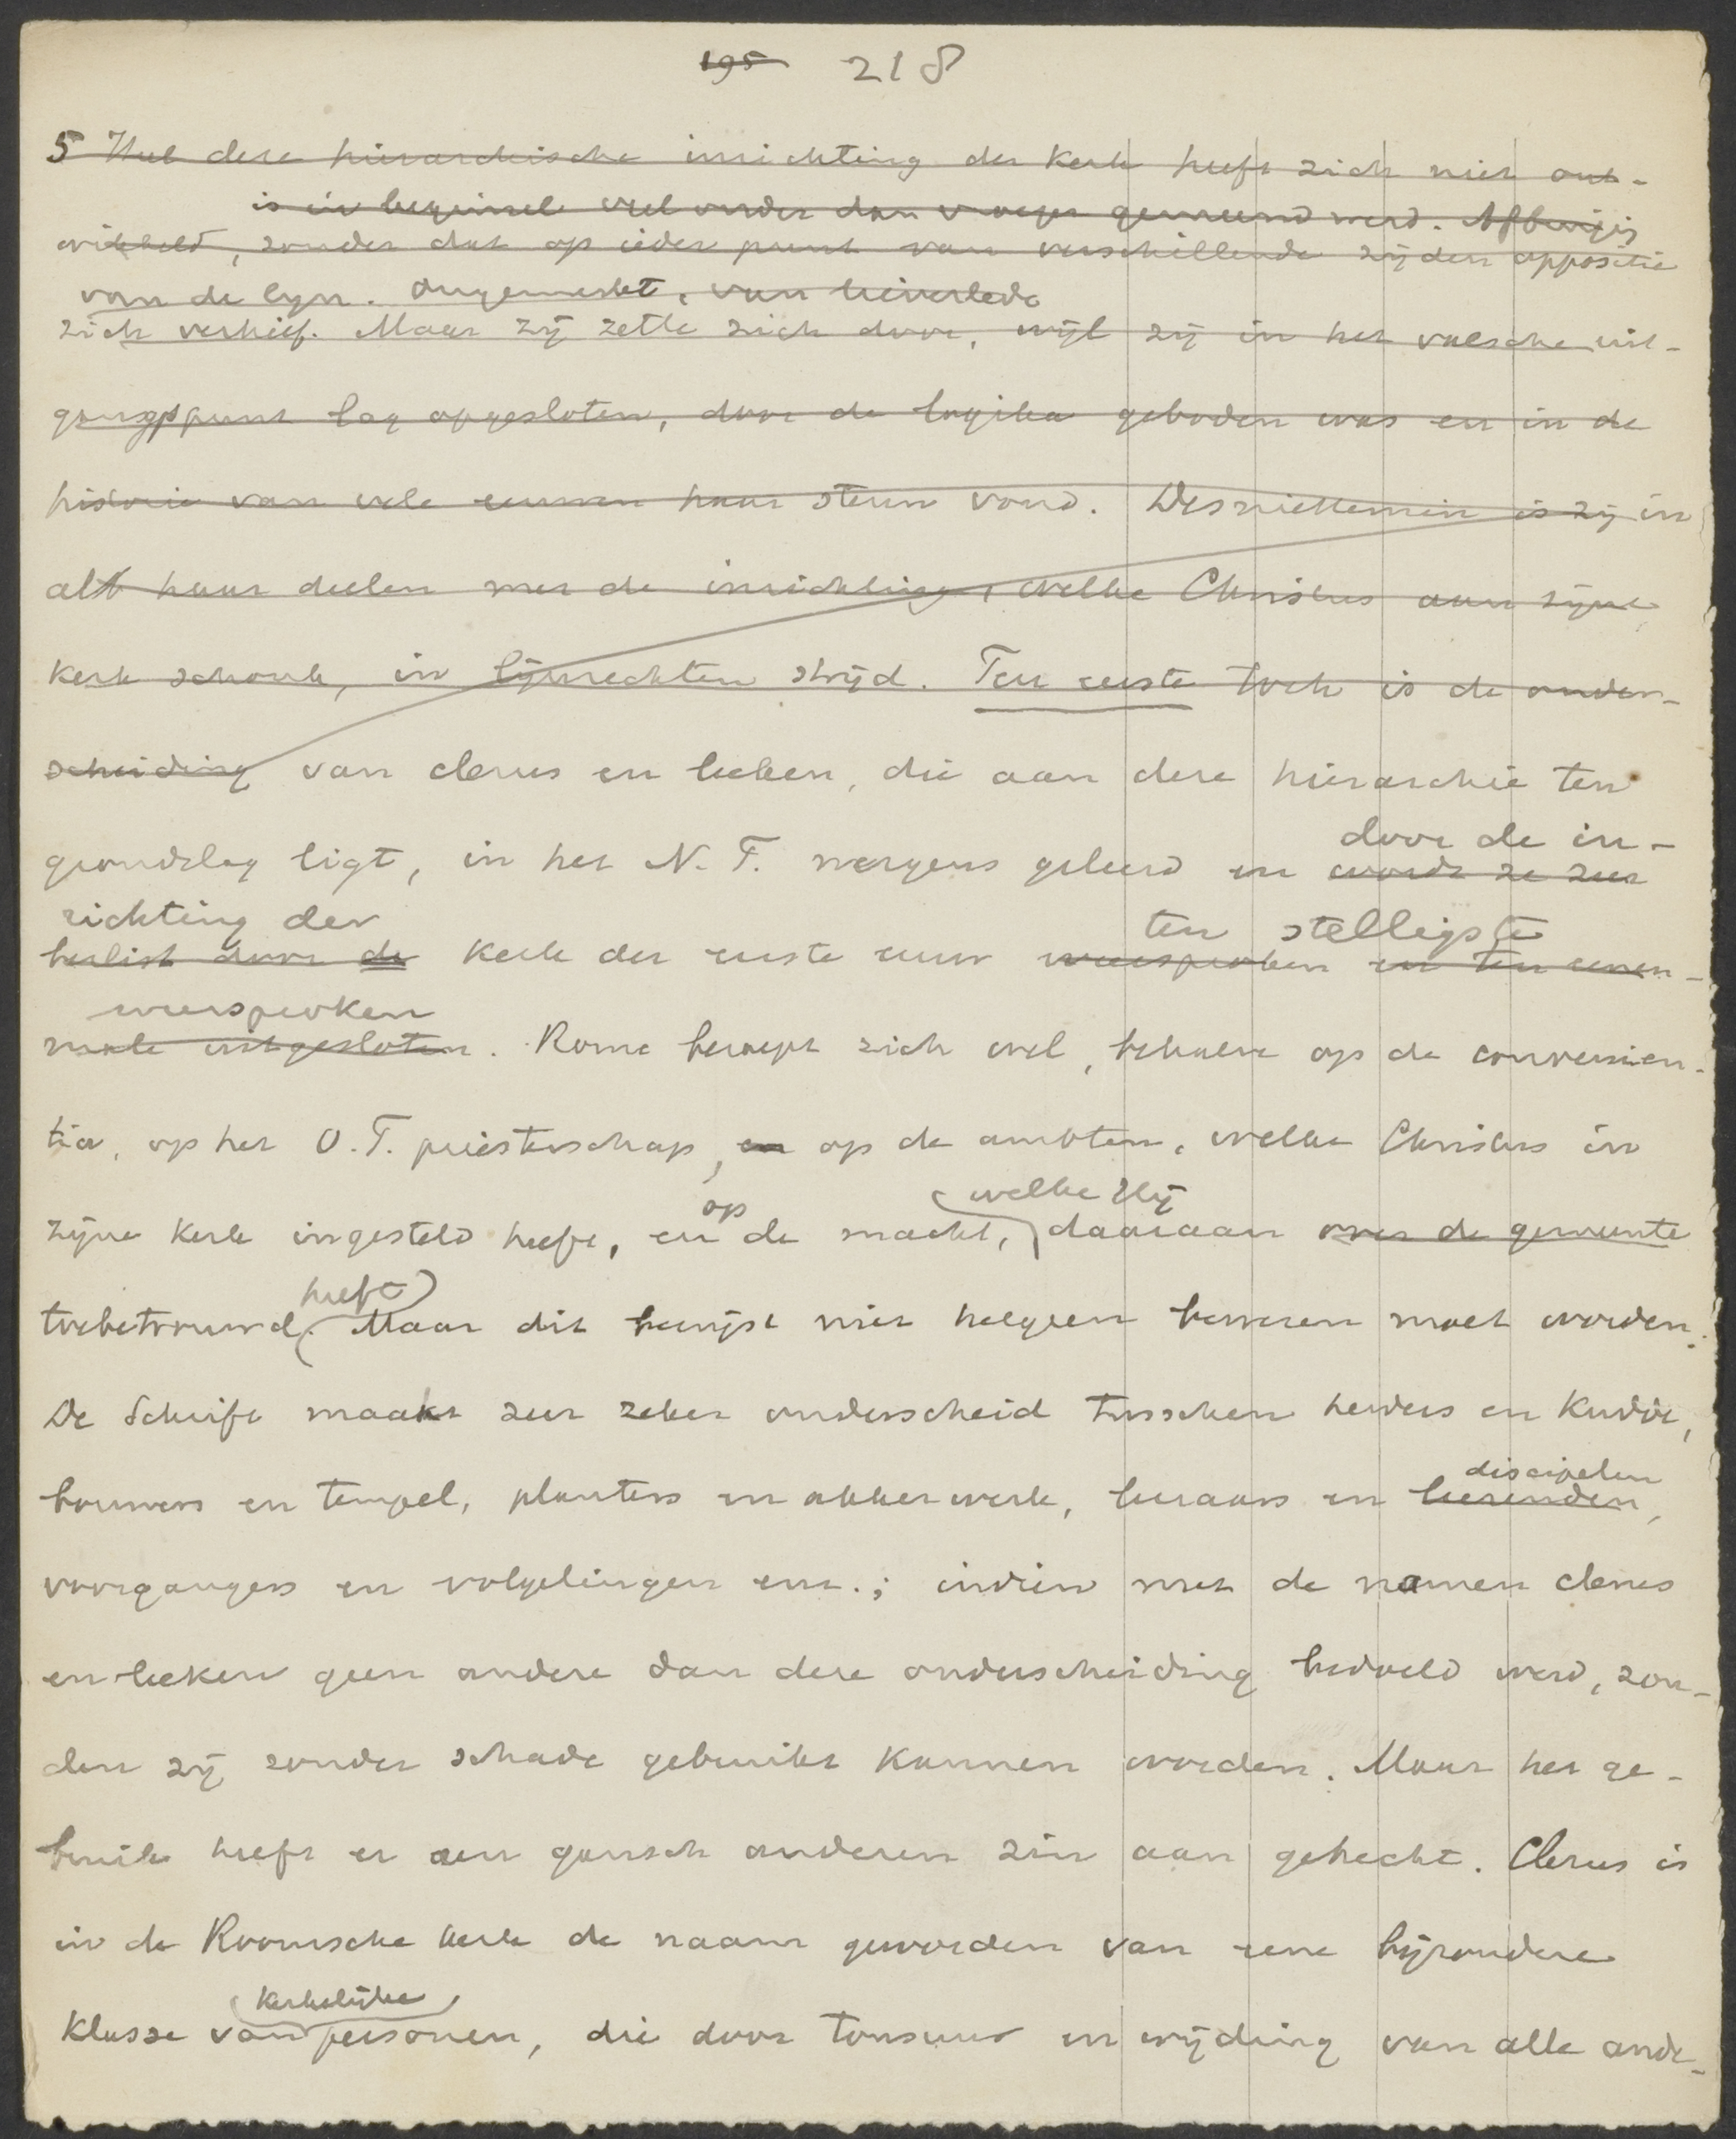 195 218
5 Heel deze hierarchische inrichting der kerk heeft zich niet ont-
is in beginsel veel ouder dan vroeger gemeend werd. Afbuiging
wikkeld, zonder dat op ieder punt van verschillende zijden oppositie
van de lijn. ongemerkt, van lieverlede
zich verhief. Maar zij zette zich door, wijl zij in het valsche uit-
gangspunt lag opgesloten, door de logika geboden was en in de
historie van vele eeuwen haar steun vond. Desniettemin is zij in
al haar deelen met de inrichting, welke Christus aan zijne
kerk schonk, in lijnrechten strijd. Ten eerste toch is de onder-
scheiding van clerus en leeken, die aan deze hierarchie ten
door de in-
grondslag ligt, in het N. T. nergens geleerd en wordt ze zeer
richting der ten stelligste
beslist door de kerk der eerste eeuw weersproken en ten eenen-
weersproken
male uitgesloten. Rome beroept zich wel, behalve op de convenien-
tia, op het O. T. priesterschap, en op de ambten, welke Christus in
op welke Hij
zijne kerk ingesteld heeft, en de macht, daaraan over de gemeente
heeft
toebetrouwd. Maar dit bewijst niet hetgeen bewezen moet worden.
De Schrift maakt zeer zeker onderscheid tusschen herders en kudde,
discipelen
bouwers en tempel, planters en akkerwerk, leeraars en leerenden,
voorgangers en volgelingen enz.; indien met de namen clerus
en leeken geen andere dan deze onderscheiding bedoeld werd, zou-
den zij zonder schade gebruikt kunnen worden. Maar het ge-
bruik heeft er een gansch anderen zin aan gehecht. Clerus is
in de Roomsche kerk de naam geworden van eene bijzondere
kerkelijke
klasse van personen, die door tonsuur en wijding van alle ande-